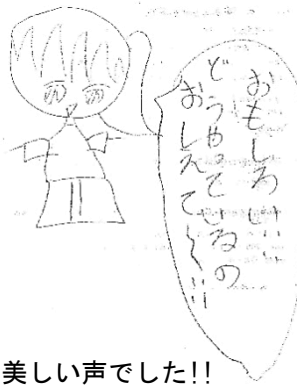 おもしろい!!
どうやっているの
おしえて〜!!
美しい声でした!!